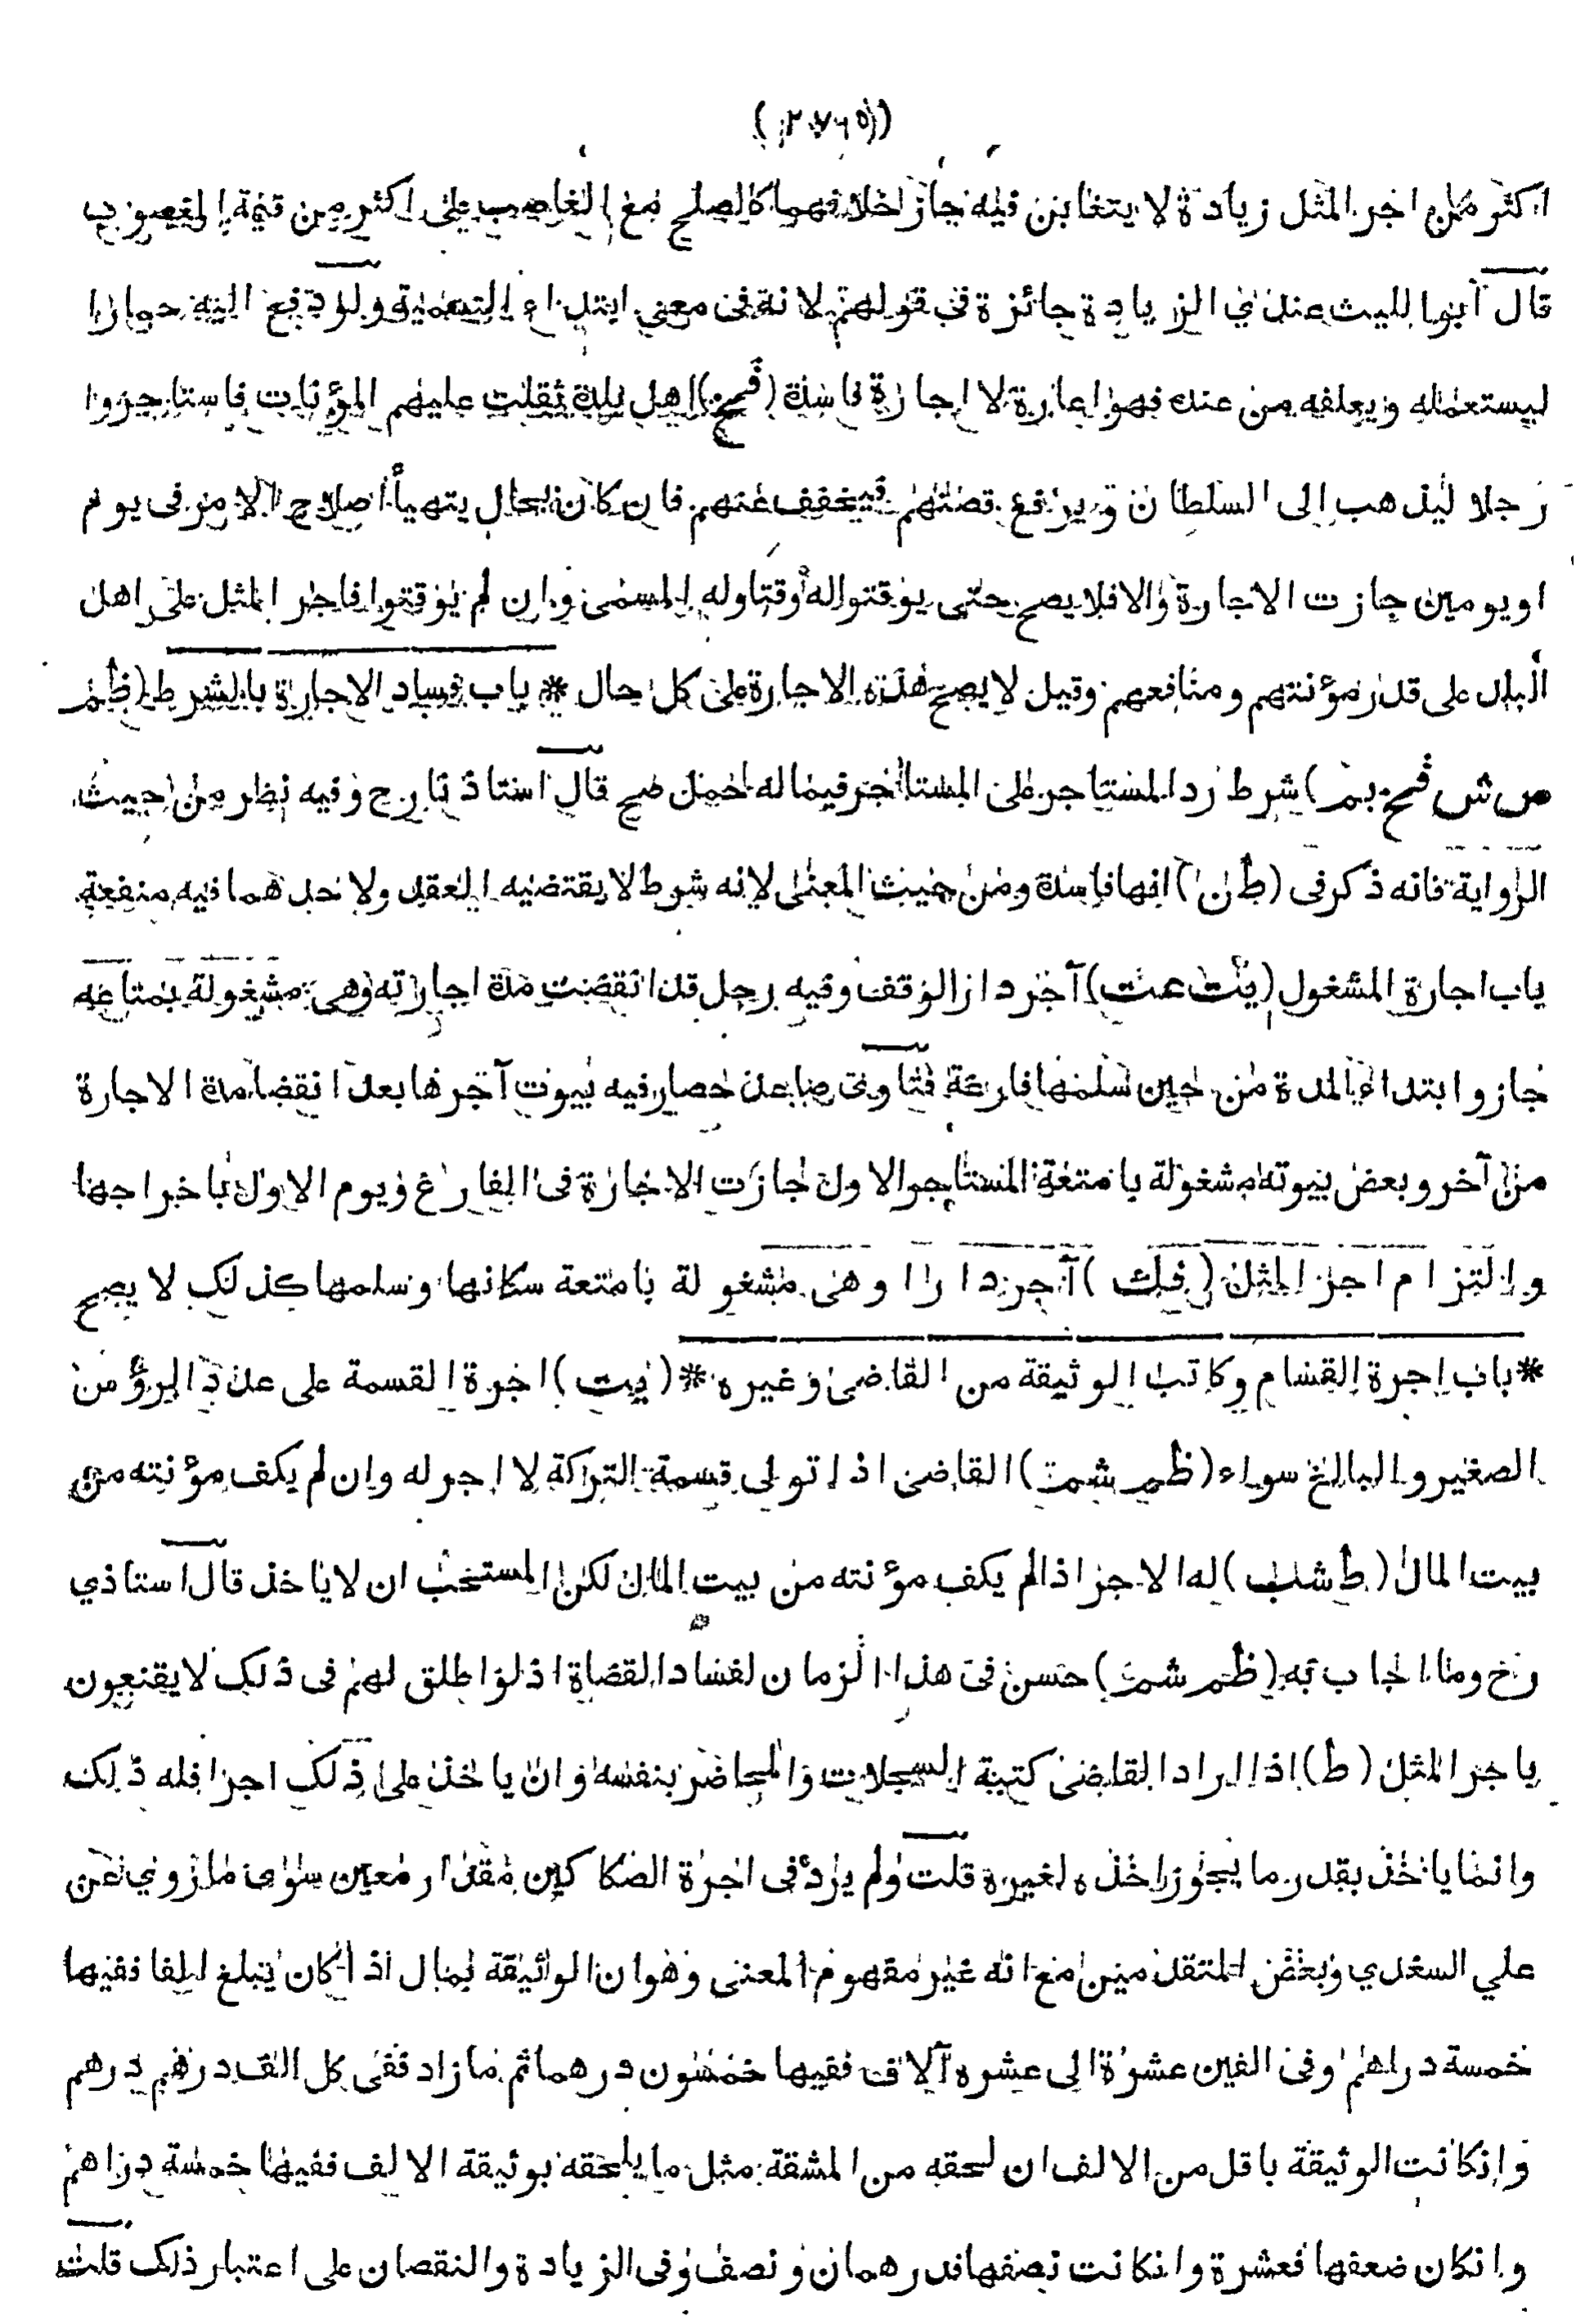 (٢٧٦٥)
اكثر من اجر المثل زيادة لا يتغابن فيه جاز خلا فهما كالصلح مع الغاصب على اكثر من قيمة المغصوب
قال ابو الليث عندي الزيادة جائزة في قولهم لانه في معنى ابتداء التسمية ولو دفع اليه حمارا
ليستعمله ويعلفه من عنده فهو اعارة لا اجارة فاسدة (فح) اهل بلدة ثقلت عليهم المؤنات فاستاجروا
رجلا ليذهب الى السلطان ويرفع قصتهم فيخفف عنهم فان كان بحال يتهيأ اصلاح الامر في يوم
او يومين جازت الاجارة والافلا يصح حتى يوقتوا له وقتا وله المسمى وان لم يوقتوا فاجر المثل على اهل
البلد على قدر مؤنتهم ومنافعهم وقيل لا يصح هذه الاجارة على كل حال * باب فساد الاجارة بالشرط (ظم
ص ش فح بم) شرط رد المستاجر على المستاجر فيما له حمل صح قال استاذنا رح وفيه نظر من حيث
الرواية فانه ذكر في (ط ن) انها فاسدة ومن حيث المعنى لانه شرط لا يقتضيه العقد ولاحدهما فيه منفعة
باب اجارة المشغول (يت عت) آجر دار الوقف وفيه رجل قد انقضت مدة اجارته وهي مشغولة بمتاعه
جاز وابتداء المدة من حين تسلمها فارغة فتاوى صاعد حصار فيه بيوت آجرها بعد انقضا مدة الاجارة
من آخر وبعض بيوته مشغولة بامتعة المستاجر الاول جازت الاجارة في الفارغ ويوم الاول باخراجها
والتزام اجر المثل (فك) آجر دارا وهي مشغولة بامتعة سكانها وسلمها كذلك لا يصح
* باب اجرة القسام وكاتب الوثيقة من القاضى وغيره * (يت) اجرة القسمة على عدد الرؤس
الصغير والبالغ سواء (ظم شمت) القاضى اذا تولى قسمة التركة لا اجر له وان لم يكف مؤنته من
بيت المال (ط شب) له الاجر اذا لم يكف مؤنته من بيت المال لكن المستحب ان لا ياخذ قال استاذي
رح وما اجاب به (ظم شمت) حسن في هذا الزمان لفساد القضاة اذ لو اطلق لهم في ذلك لا يقنعون
باجر المثل (ط) اذا اراد القاضى كتبة السجلات والمحاضر بنفسه وان ياخذ على ذلك اجرا فله ذلك
وانما ياخذ بقدر ما يجوز اخذه لغيره قلت ولم يرد في اجرة الصكاكين مقدار معين سوى ما روي عن
علي السغدي وبعض المتقدمين مع انه غير مفهوم المعنى وهو ان الوثيقة بمال اذا كان يبلغ الفا ففيها
خمسة دراهم وفي الفين عشرة الى عشره آلاف ففيها خمسون درهما ثم ما زاد ففى كل الف درهم درهم
وانكانت الوثيقة باقل من الالف ان لحقه من المشقة مثل ما يلحقه بوثيقة الالف ففيها خمسة دراهم
وانكان ضعفها فعشرة وانكانت نصفها فدرهمان ونصف وفى الزيادة والنقصان على اعتبار ذلك قلت